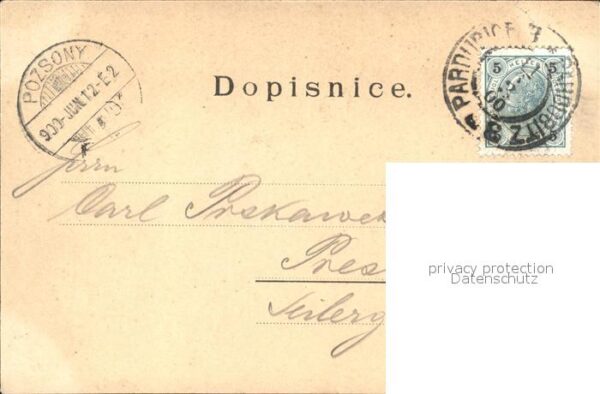 POZSONY
900-JUN.12-E·2
Dopisnice.
PARDUBICE
PARDUBITZ
5 5
Herrn
Carl
Pres
Seilerg
privacy protection
Datenschutz